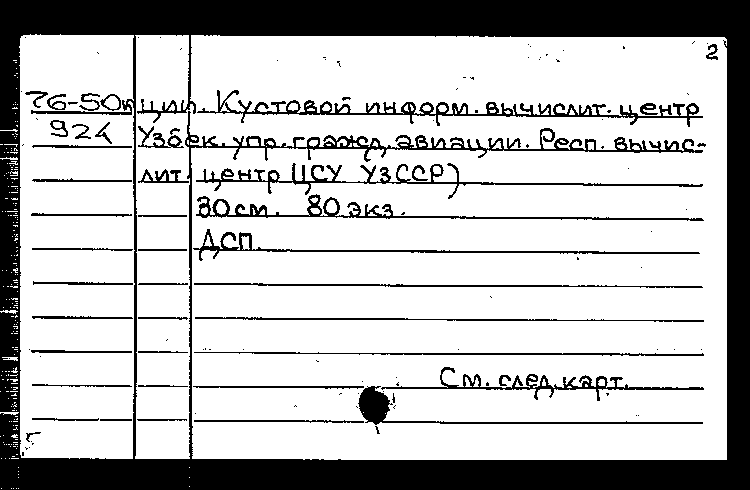 2
76-50к ции. Кустовой информ. вычислит. центр
924 Узбек. упр. гражд. авиации. Респ. вычис-
лит. центр ЦСУ УзССР).
30 см. 80 экз.
ДСП.
См. след. карт.